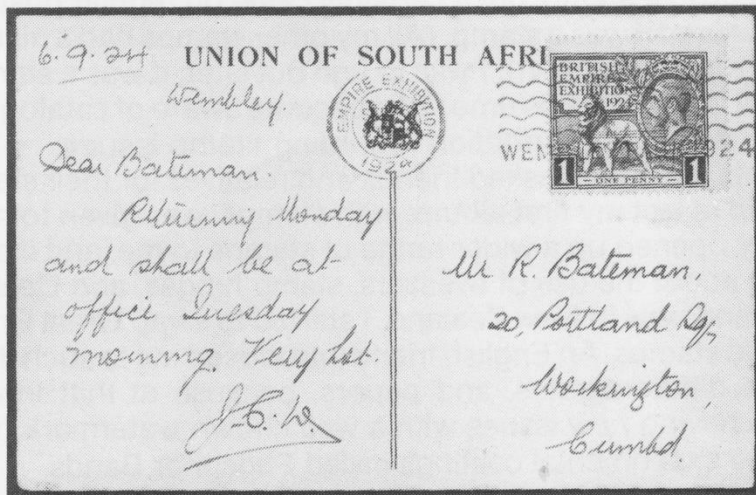 6.9.24
UNION OF SOUTH AFRI
Wembley.
EMPIRE EXHIBITION
1924
BRITISH
EMPIRE
EXHIBITION
1924
WEMB 1924
1 ONE PENNY 1
Dear Bateman.
Returning Monday
and shall be at
office Tuesday
morning. Very hot.
Mr R. Bateman,
20, Portland Sq,
Workington,
Cumbd.